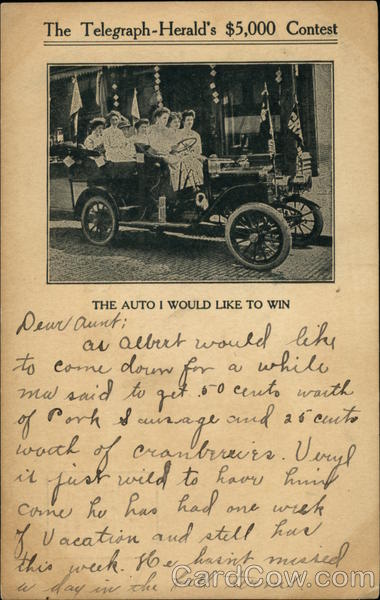 The Telegraph-Herald's $5,000 Contest
THE AUTO I WOULD LIKE TO WIN
Dear Aunt;
as Albert would like
to come down for a while
ma said to get .50 cents worth
of Pork Sausage and 25 cents
worth of cranberries. Veryl
is just wild to have him
come he has had one week
of Vacation and still has
this week. He hasn't missed
a day in the
CardCow.com